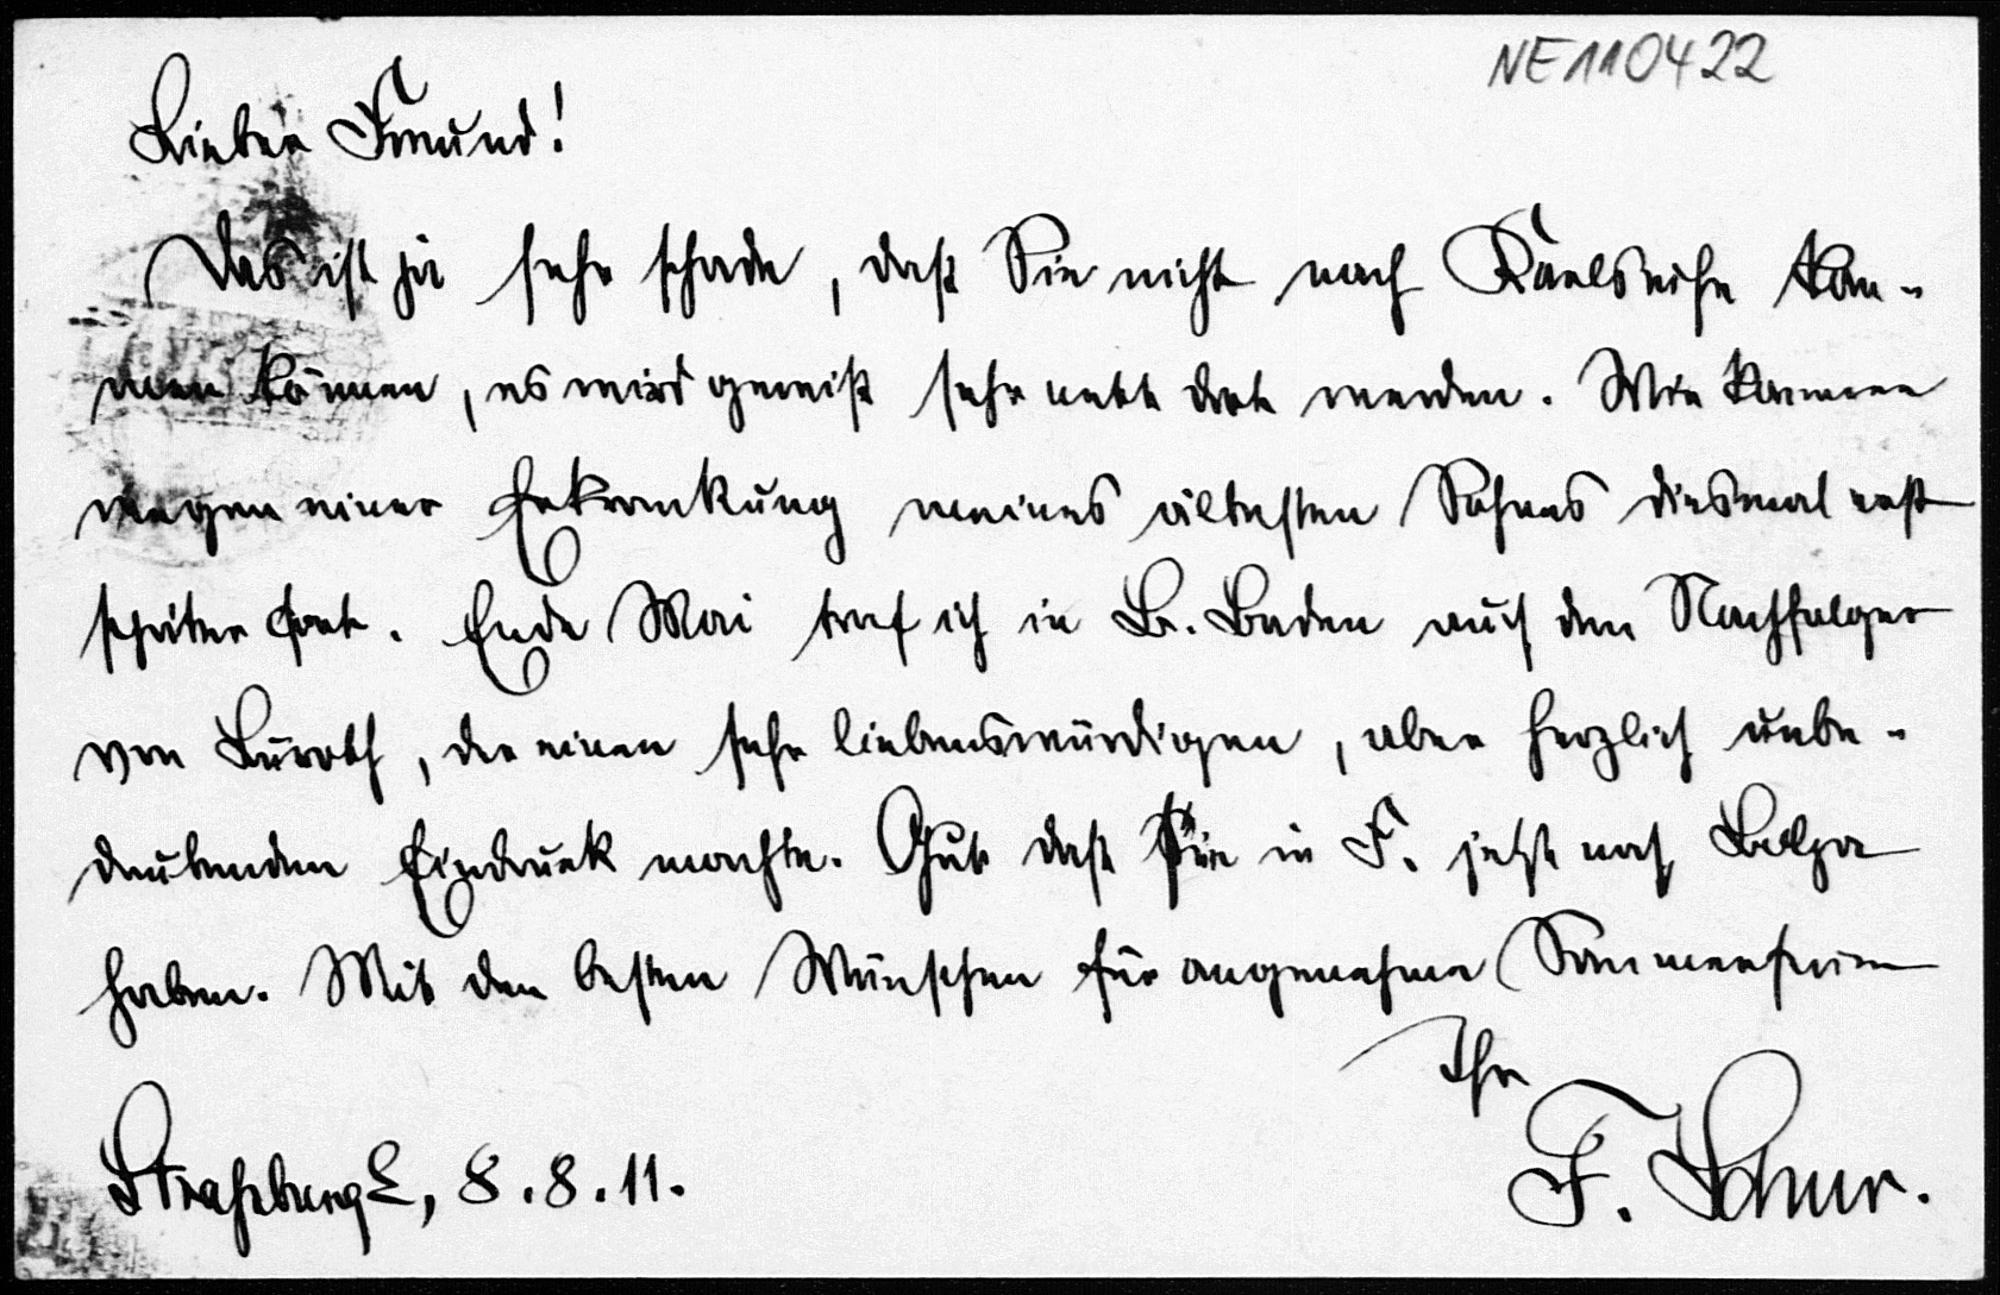 NE110422
Lieber Freund!
Das ist ja sehr schade, daß Sie nicht nach Karlsruhe kom-
men können, es wird gewiß sehr nett dort werden. Wir kommen
wegen einer Erkrankung meines ältesten Sohnes diesmal erst
später fort. Ende Mai traf ich in B. Baden auch den Nachfolger
von Lüroth, der einen sehr liebenswürdigen, aber herzlich unbe-
deutenden Eindruck machte. Gut daß Sie in F. jetzt noch Bolza
haben. Mit den besten Wünschen für angenehme Sommerferien
Ihr
Straßburg E, 8.8.11.
F. Schur.